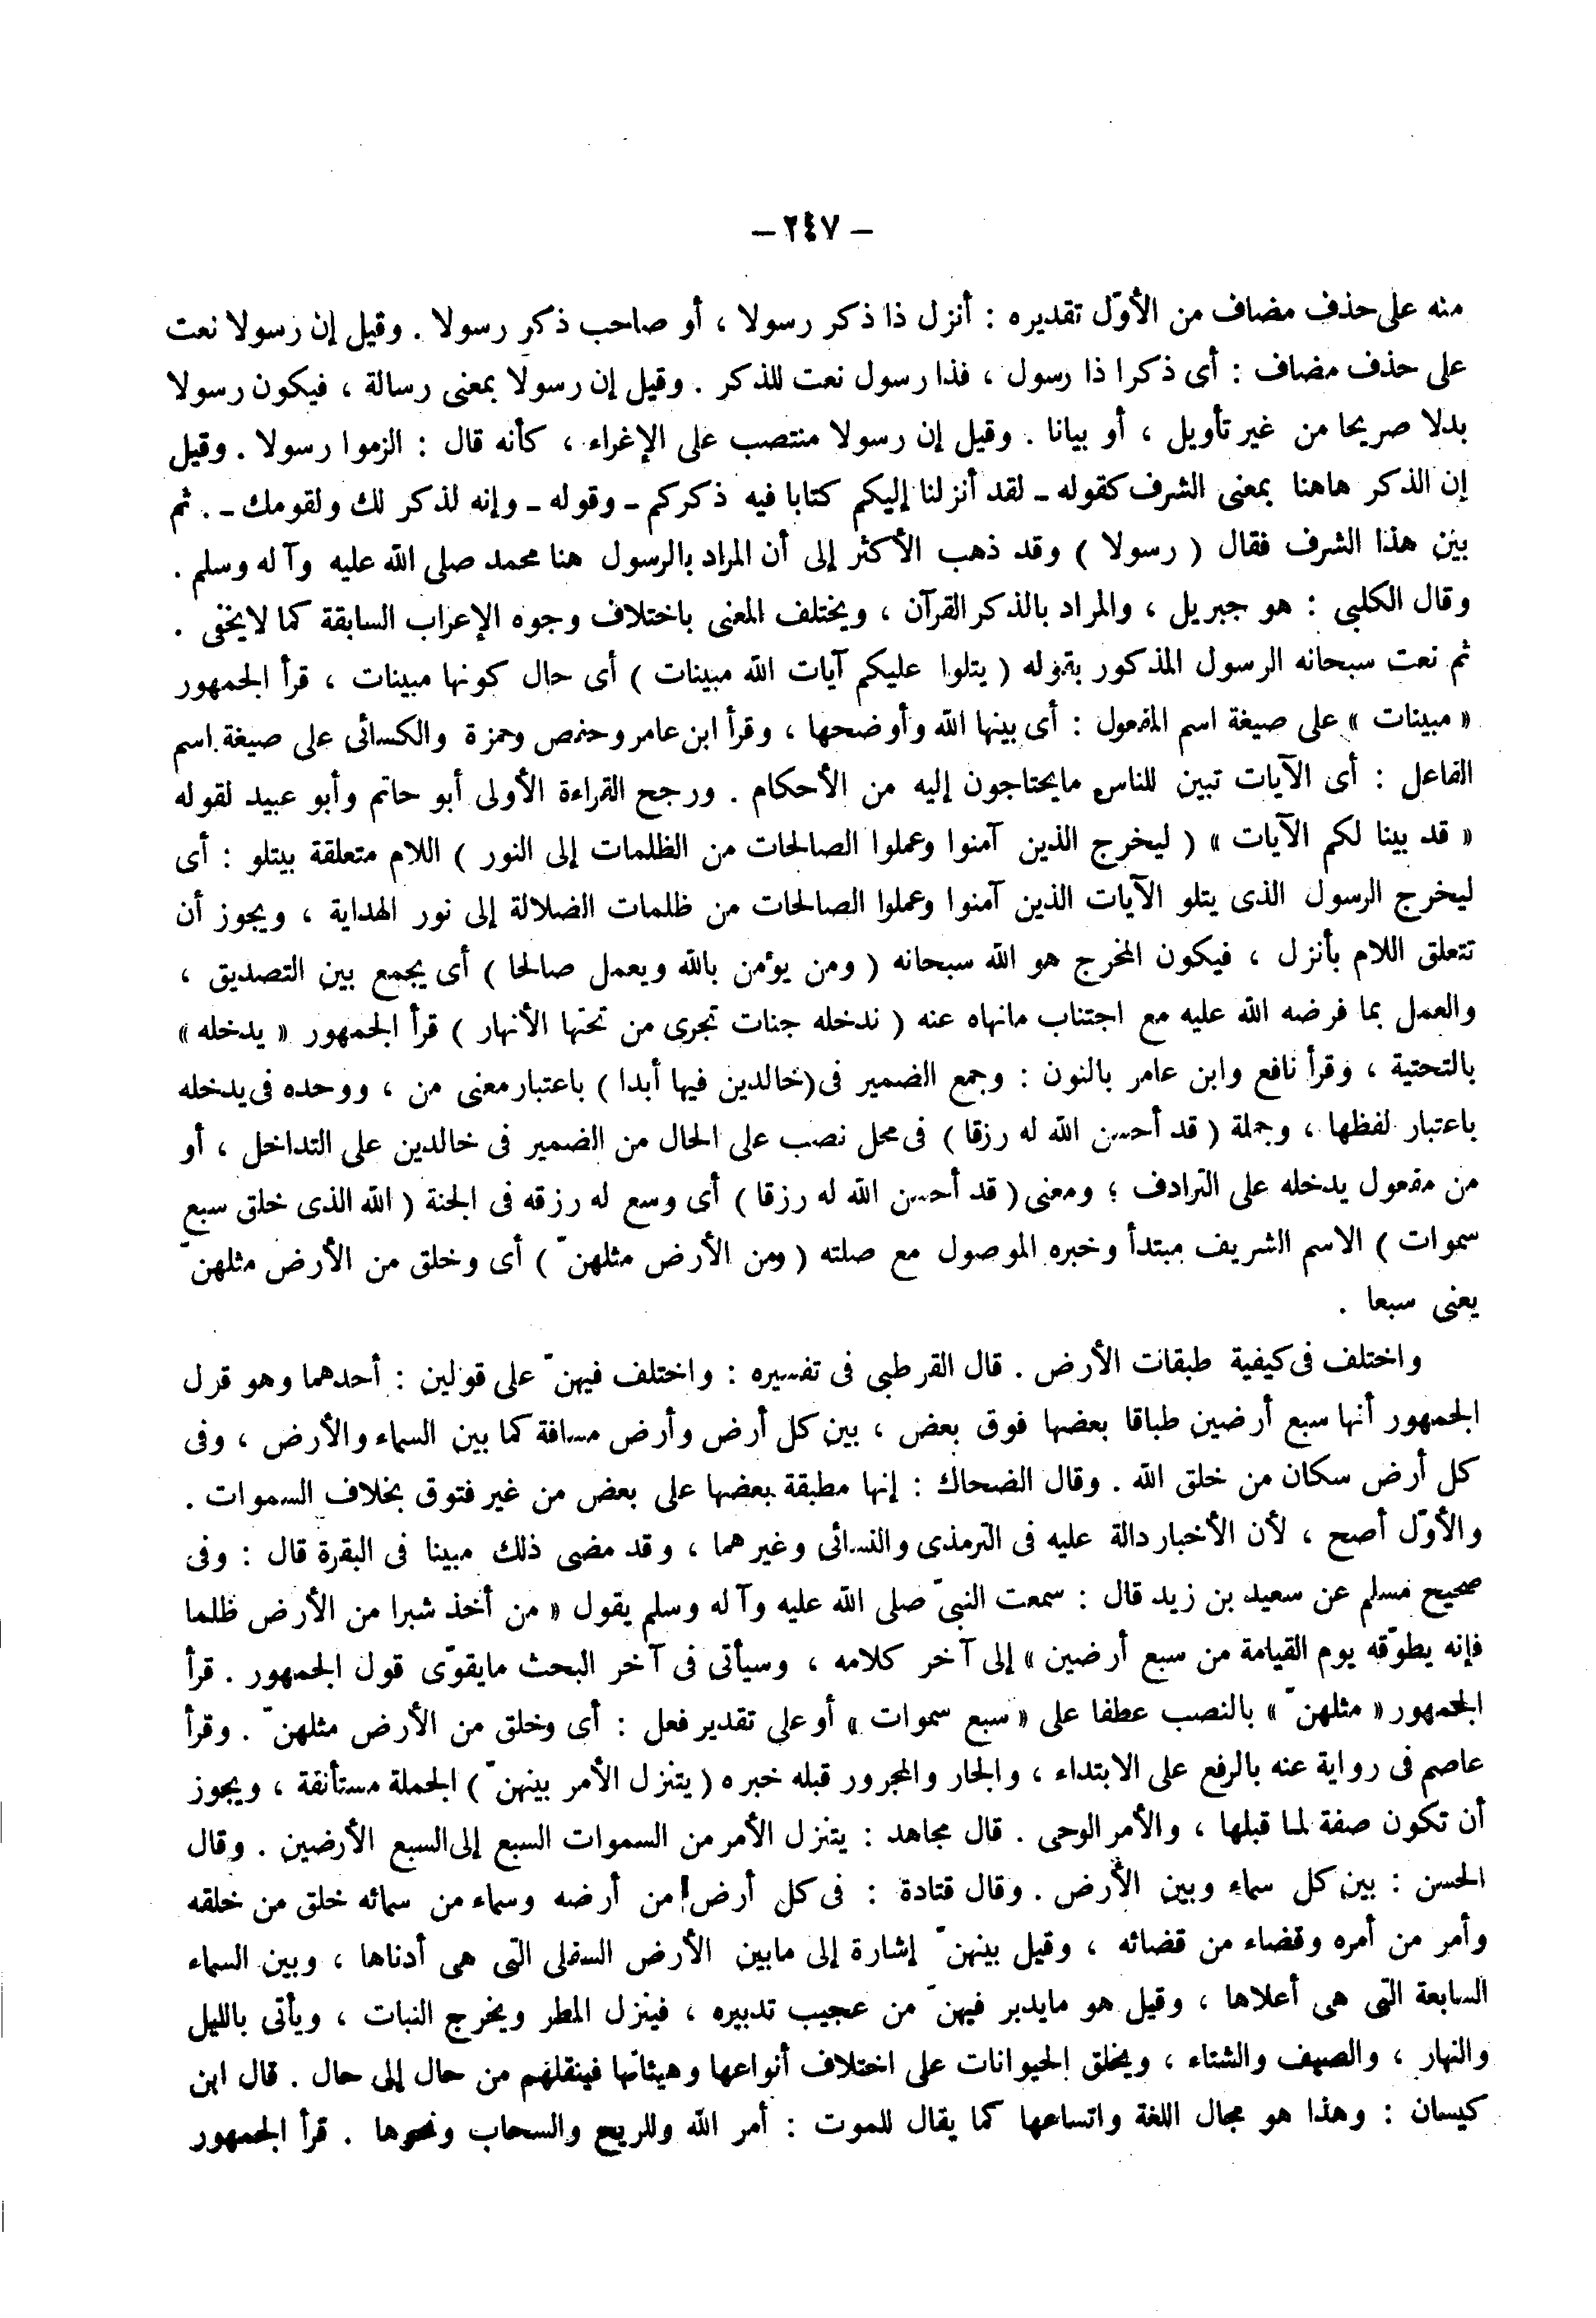 — ٢٤٧ —
منه على حذف مضاف من الأوّل تقديره : أنزل ذا ذكر رسولا ، أو صاحب ذكر رسولا . وقيل إن رسولا نعت
على حذف مضاف : أى ذكرا ذا رسول ، فذا رسول نعت للذكر . وقيل إن رسولا بمعنى رسالة ، فيكون رسولا
بدلا صريحا من غير تأويل ، أو بيانا . وقيل إن رسولا منتصب على الإغراء ، كأنه قال : الزموا رسولا . وقيل
إن الذكر هاهنا بمعنى الشرف كقوله ـ لقد أنزلنا إليكم كتابا فيه ذكركم ـ وقوله ـ وإنه لذكر لك ولقومك ـ . ثم
بين هذا الشرف فقال ( رسولا ) وقد ذهب الأكثر إلى أن المراد بالرسول هنا محمد صلى الله عليه وآله وسلم .
وقال الكلبى : هو جبريل ، والمراد بالذكر القرآن ، ويختلف المعنى باختلاف وجوه الإعراب السابقة كما لايخفى .
ثم نعت سبحانه الرسول المذكور بقوله ( يتلوا عليكم آيات الله مبينات ) أى حال كونها مبينات ، قرأ الجمهور
« مبينات » على صيغة اسم المفعول : أى بينها الله وأوضحها ، وقرأ ابن عامر وحفص وحمزة والكسائى على صيغة اسم
الفاعل : أى الآيات تبين للناس مايحتاجون إليه من الأحكام . ورجح القراءة الأولى أبو حاتم وأبو عبيد لقوله
« قد بينا لكم الآيات » ( ليخرج الذين آمنوا وعملوا الصالحات من الظلمات إلى النور ) اللام متعلقة بيتلو : أى
ليخرج الرسول الذى يتلو الآيات الذين آمنوا وعملوا الصالحات من ظلمات الضلالة إلى نور الهداية ، ويجوز أن
تتعلق اللام بأنزل ، فيكون المخرج هو الله سبحانه ( ومن يؤمن بالله ويعمل صالحا ) أى يجمع بين التصديق ،
والعمل بما فرضه الله عليه مع اجتناب مانهاه عنه ( ندخله جنات تجرى من تحتها الأنهار ) قرأ الجمهور « يدخله »
بالتحتية ، وقرأ نافع وابن عامر بالنون : وجمع الضمير فى (خالدين فيها أبدا ) باعتبار معنى من ، ووحده فى يدخله
باعتبار لفظها ، وجملة ( قد أحسن الله له رزقا ) فى محل نصب على الحال من الضمير فى خالدين على التداخل ، أو
من مفعول يدخله على الترادف ؛ ومعنى ( قد أحسن الله له رزقا ) أى وسع له رزقه فى الجنة ( الله الذى خلق سبع
سموات ) الاسم الشريف مبتدأ وخبره الموصول مع صلته ( ومن الأرض مثلهنّ ) أى وخلق من الأرض مثلهنّ
يعنى سبعا .
واختلف فى كيفية طبقات الأرض . قال القرطبى فى تفسيره : واختلف فيهنّ على قولين : أحدهما وهو قول
الجمهور أنها سبع أرضين طباقا بعضها فوق بعض ، بين كل أرض وأرض مسافة كما بين السماء والأرض ، وفى
كل أرض سكان من خلق الله . وقال الضحاك : إنها مطبقة بعضها على بعض من غير فتوق بخلاف السموات .
والأوّل أصح ، لأن الأخبار دالة عليه فى الترمذى والنسائى وغيرهما ، وقد مضى ذلك مبينا فى البقرة قال : وفى
صحيح مسلم عن سعيد بن زيد قال : سمعت النبىّ صلى الله عليه وآله وسلم يقول « من أخذ شبرا من الأرض ظلما
فإنه يطوّقه يوم القيامة من سبع أرضين » إلى آخر كلامه ، وسيأتى فى آخر البحث مايقوّى قول الجمهور . قرأ
الجمهور « مثلهنّ » بالنصب عطفا على « سبع سموات » أو على تقدير فعل : أى وخلق من الأرض مثلهنّ . وقرأ
عاصم فى رواية عنه بالرفع على الابتداء ، والجار والمجرور قبله خبره ( يتنزل الأمر بينهنّ ) الجملة مستأنفة ، ويجوز
أن تكون صفة لما قبلها ، والأمر الوحى . قال مجاهد : يتنزل الأمر من السموات السبع إلى السبع الأرضين . وقال
الحسن : بين كل سماء وبين الأرض . وقال قتادة : فى كل أرض من أرضه وسماء من سمائه خلق من خلقه
وأمر من أمره وقضاء من قضائه ، وقيل بينهنّ إشارة إلى مابين الأرض السفلى التى هى أدناها ، وبين السماء
السابعة التى هى أعلاها ، وقيل هو مايدبر فيهنّ من عجيب تدبيره ، فينزل المطر ويخرج النبات ، ويأتى بالليل
والنهار ، والصيف والشتاء ، ويخلق الحيوانات على اختلاف أنواعها وهيئاتها فينقلهم من حال إلى حال . قال ابن
كيسان : وهذا هو مجال اللغة واتساعها كما يقال للموت : أمر الله وللريح والسحاب ونحوها . قرأ الجمهور